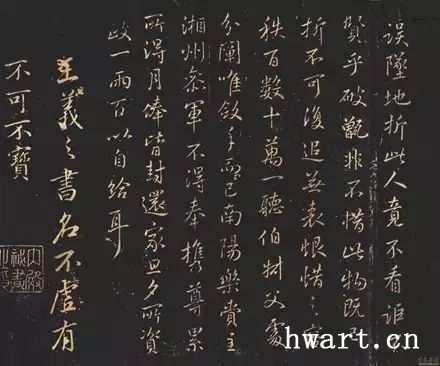 誤墜地折此人竟不看詎
賢乎破甑非不惜此物既
折不可復追無表恨惜之
秩百數十萬一聽伯樹父處
分闌唯斂手而已南陽樂賞主
湘州參軍不得奉攜尊累
所得月俸皆封還家旦夕所資
政一兩百以自給耳
王羲之書名不虛有
不可不寶
hwart.cn